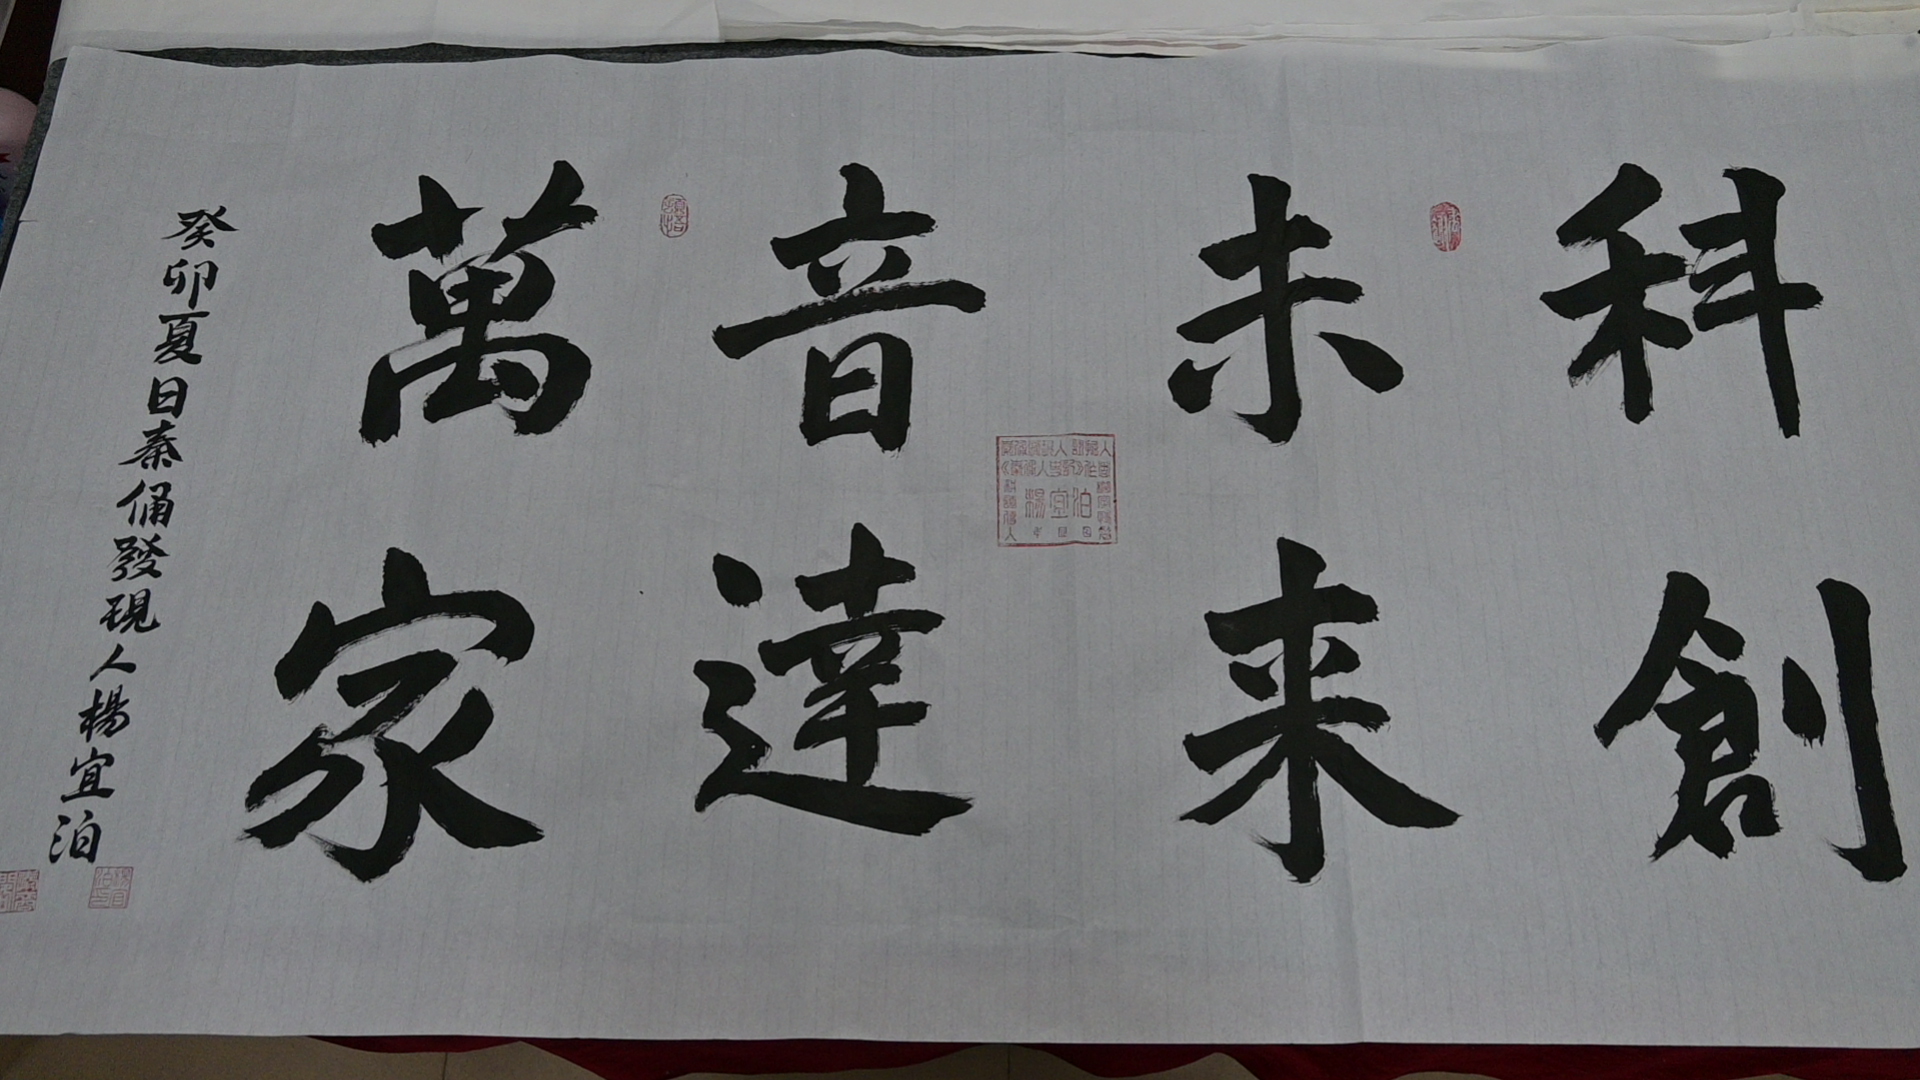 科創
未来
音達
萬家
癸卯夏日秦俑發現人楊宜泊